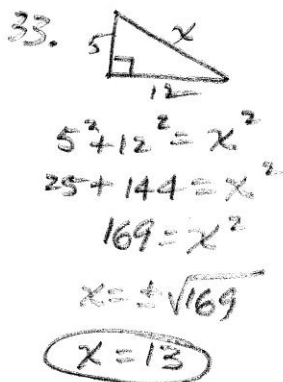 33.
5
x
12
5²+12²=x²
25+144=x²
169=x²
x=±√169
x=13